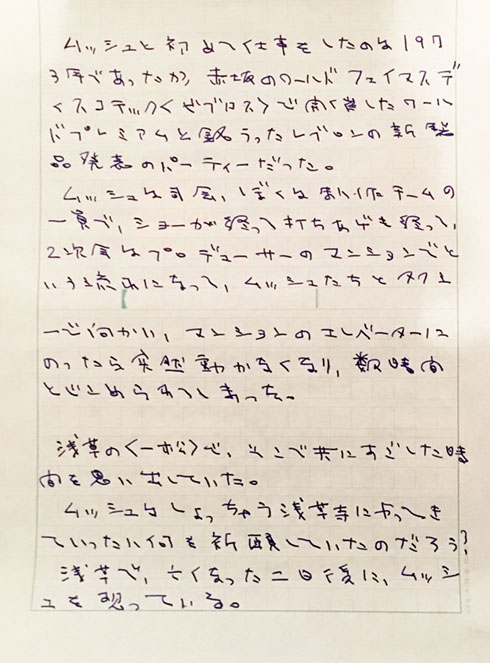 ムッシュと初めて仕事をしたのは197
3年であったか、赤坂のワールド フェイマスディ
スコテック〈ビブロス〉で開催したワール
ドプレミアムと銘うったレブロンの新製
品発表のパーティーだった。
ムッシュは司会、ぼくは制作チームの
一員で、ショーが終って打ちあげも終って、
2次会はプロデューサーのマンションでと
いう流れになって、ムッシュたちとタクシ
ーで向かい、マンションのエレベーターに
のったら突然動かなくなり、数時間
とじこめられてしまった。
浅草の〈一松〉で、そこで共にすごした時
間を思い出していた。
ムッシュはしょっちゅう浅草寺にやってき
ていったい何を祈願していたのだろう?
浅草で、亡くなった二日後に、ムッシ
ュを想っている。